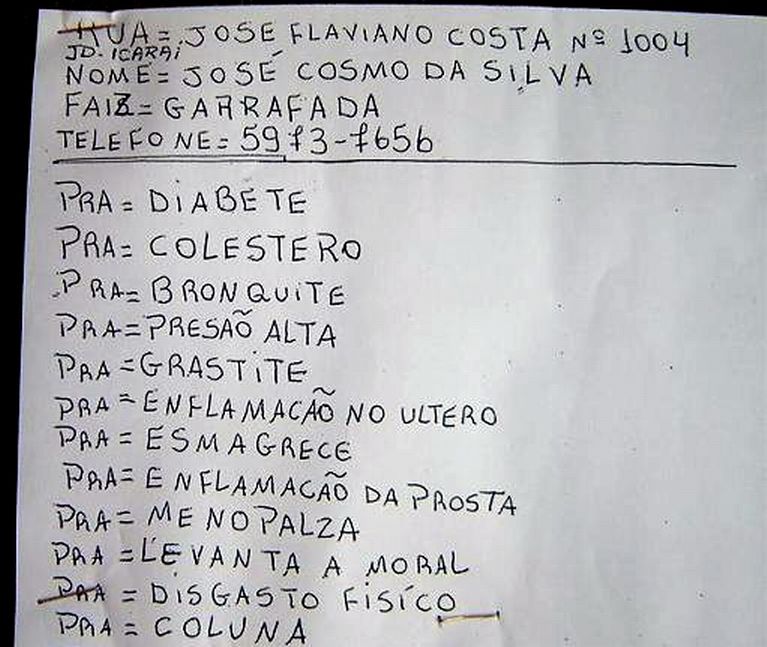 RUA = JOSE FLAVIANO COSTA Nº 1004
JD. ICARAÍ
NOME = JOSÉ COSMO DA SILVA
FAIZ = GARRAFADA
TELEFONE = 5973-7656
PRA = DIABETE
PRA = COLESTERO
PRA = BRONQUITE
PRA = PRESAÕ ALTA
PRA = GRASTITE
PRA = ENFLAMACÃO NO ULTERO
PRA = ESMAGRECE
PRA = ENFLAMACÃO DA PROSTA
PRA = MENOPALZA
PRA = LEVANTA A MORAL
PRA = DISGASTO FISÍCO
PRA = COLUNA